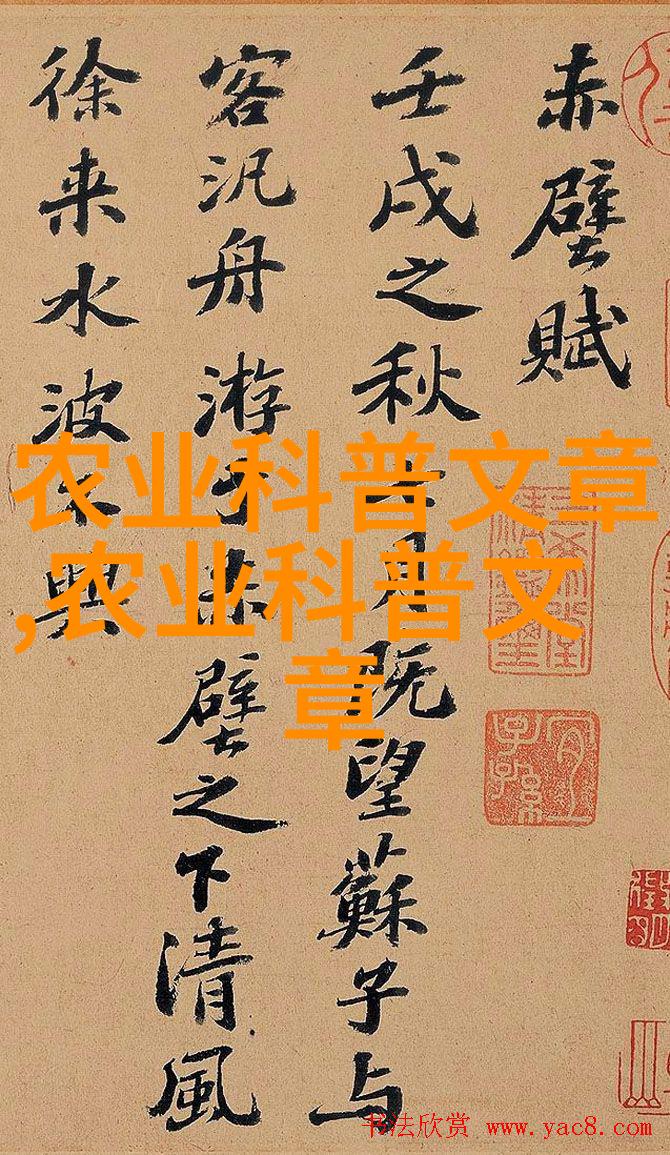 赤壁賦
壬戌之秋七月既望蘇子与
客汎舟游于赤壁之下清風
徐来水波不興
农业科普文章
,农业科普文
章
三希堂精鑑璽
宜子孫
书法欣赏 www.yac8.com